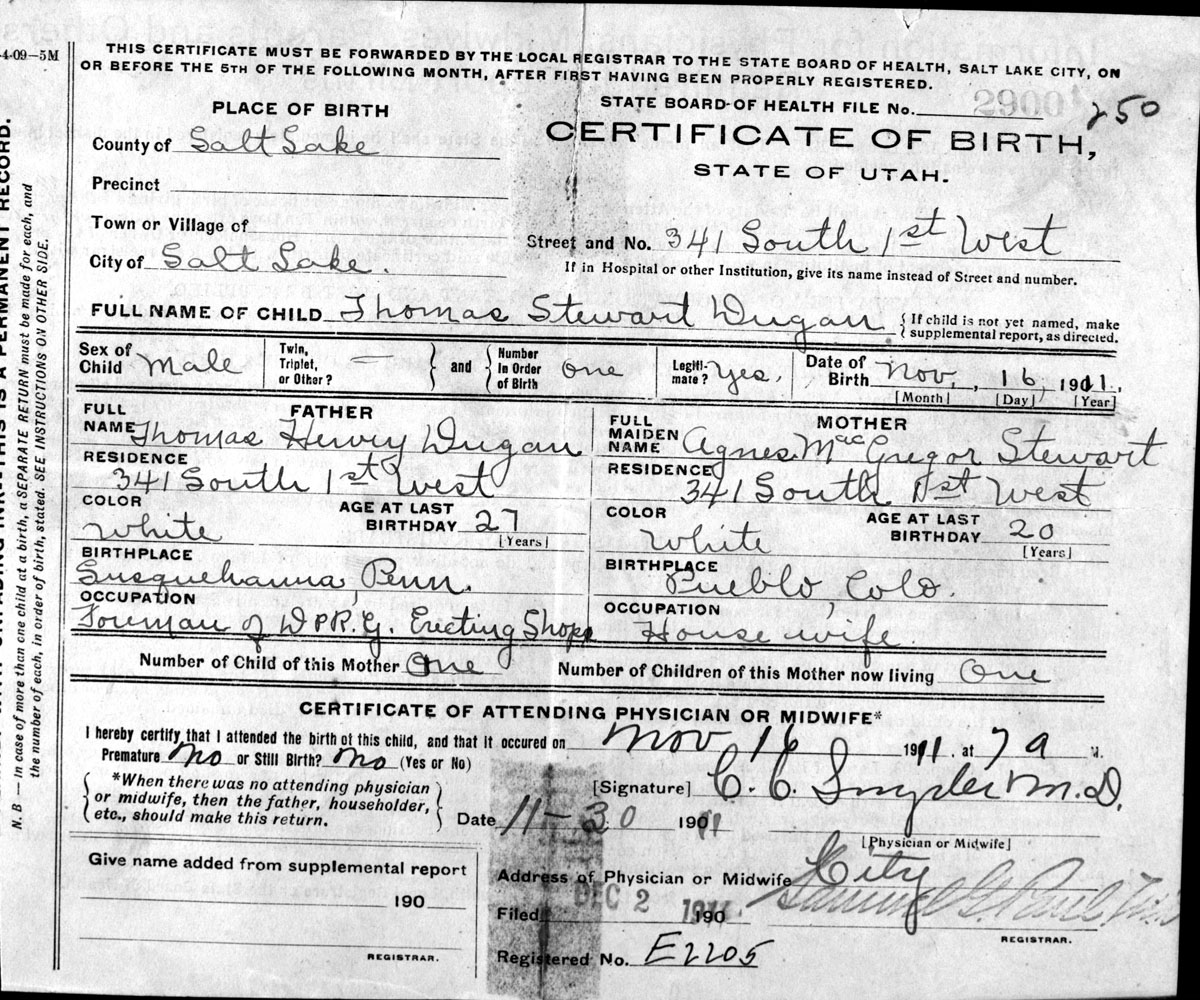 4-09—5M
THIS CERTIFICATE MUST BE FORWARDED BY THE LOCAL REGISTRAR TO THE STATE BOARD OF HEALTH, SALT LAKE CITY, ON
OR BEFORE THE 5TH OF THE FOLLOWING MONTH, AFTER FIRST HAVING BEEN PROPERLY REGISTERED.
PLACE OF BIRTH
STATE BOARD OF HEALTH FILE No. 2900 250
CERTIFICATE OF BIRTH,
STATE OF UTAH.
County of Salt Lake
Precinct
Town or Village of
City of Salt Lake.
Street and No. 341 South 1st West
If in Hospital or other Institution, give its name instead of Street and number.
FULL NAME OF CHILD Thomas Stewart Dugan
{If child is not yet named, make
supplemental report, as directed.
Sex of Child Male
Twin, Triplet, or Other? —
and
Number In Order of Birth one
Legiti-mate? Yes.
Date of Birth Nov. 16, 1911.
[Month] [Day] [Year]
FATHER
FULL NAME Thomas Henry Dugan
RESIDENCE
341 South 1st West
COLOR White
AGE AT LAST BIRTHDAY 27 [Years]
BIRTHPLACE
Susquehanna, Penn.
OCCUPATION
Foreman of D & R. G. Erecting Shops
MOTHER
FULL MAIDEN NAME Agnes MacGregor Stewart
RESIDENCE
341 South 1st West
COLOR White
AGE AT LAST BIRTHDAY 20 [Years]
BIRTHPLACE
Pueblo, Colo.
OCCUPATION
Housewife
Number of Child of this Mother One
Number of Children of this Mother now living One
CERTIFICATE OF ATTENDING PHYSICIAN OR MIDWIFE*
I hereby certify that I attended the birth of this child, and that it occured on Nov 16 1911 at 7 a M.
Premature No or Still Birth? No (Yes or No)
*When there was no attending physician
or midwife, then the father, householder,
etc., should make this return.
[Signature] C. C. Snyder M.D.
Date 11-30 1911
[Physician or Midwife]
Give name added from supplemental report
190
REGISTRAR.
Address of Physician or Midwife City
Filed DEC 2 1911 190
Samuel G. Paul
REGISTRAR.
Registered No. E2205
N. B — In case of more than one child at a birth, a SEPARATE RETURN must be made for each, and
the number of each, in order of birth, stated. SEE INSTRUCTIONS ON OTHER SIDE.
THIS IS A PERMANENT RECORD.